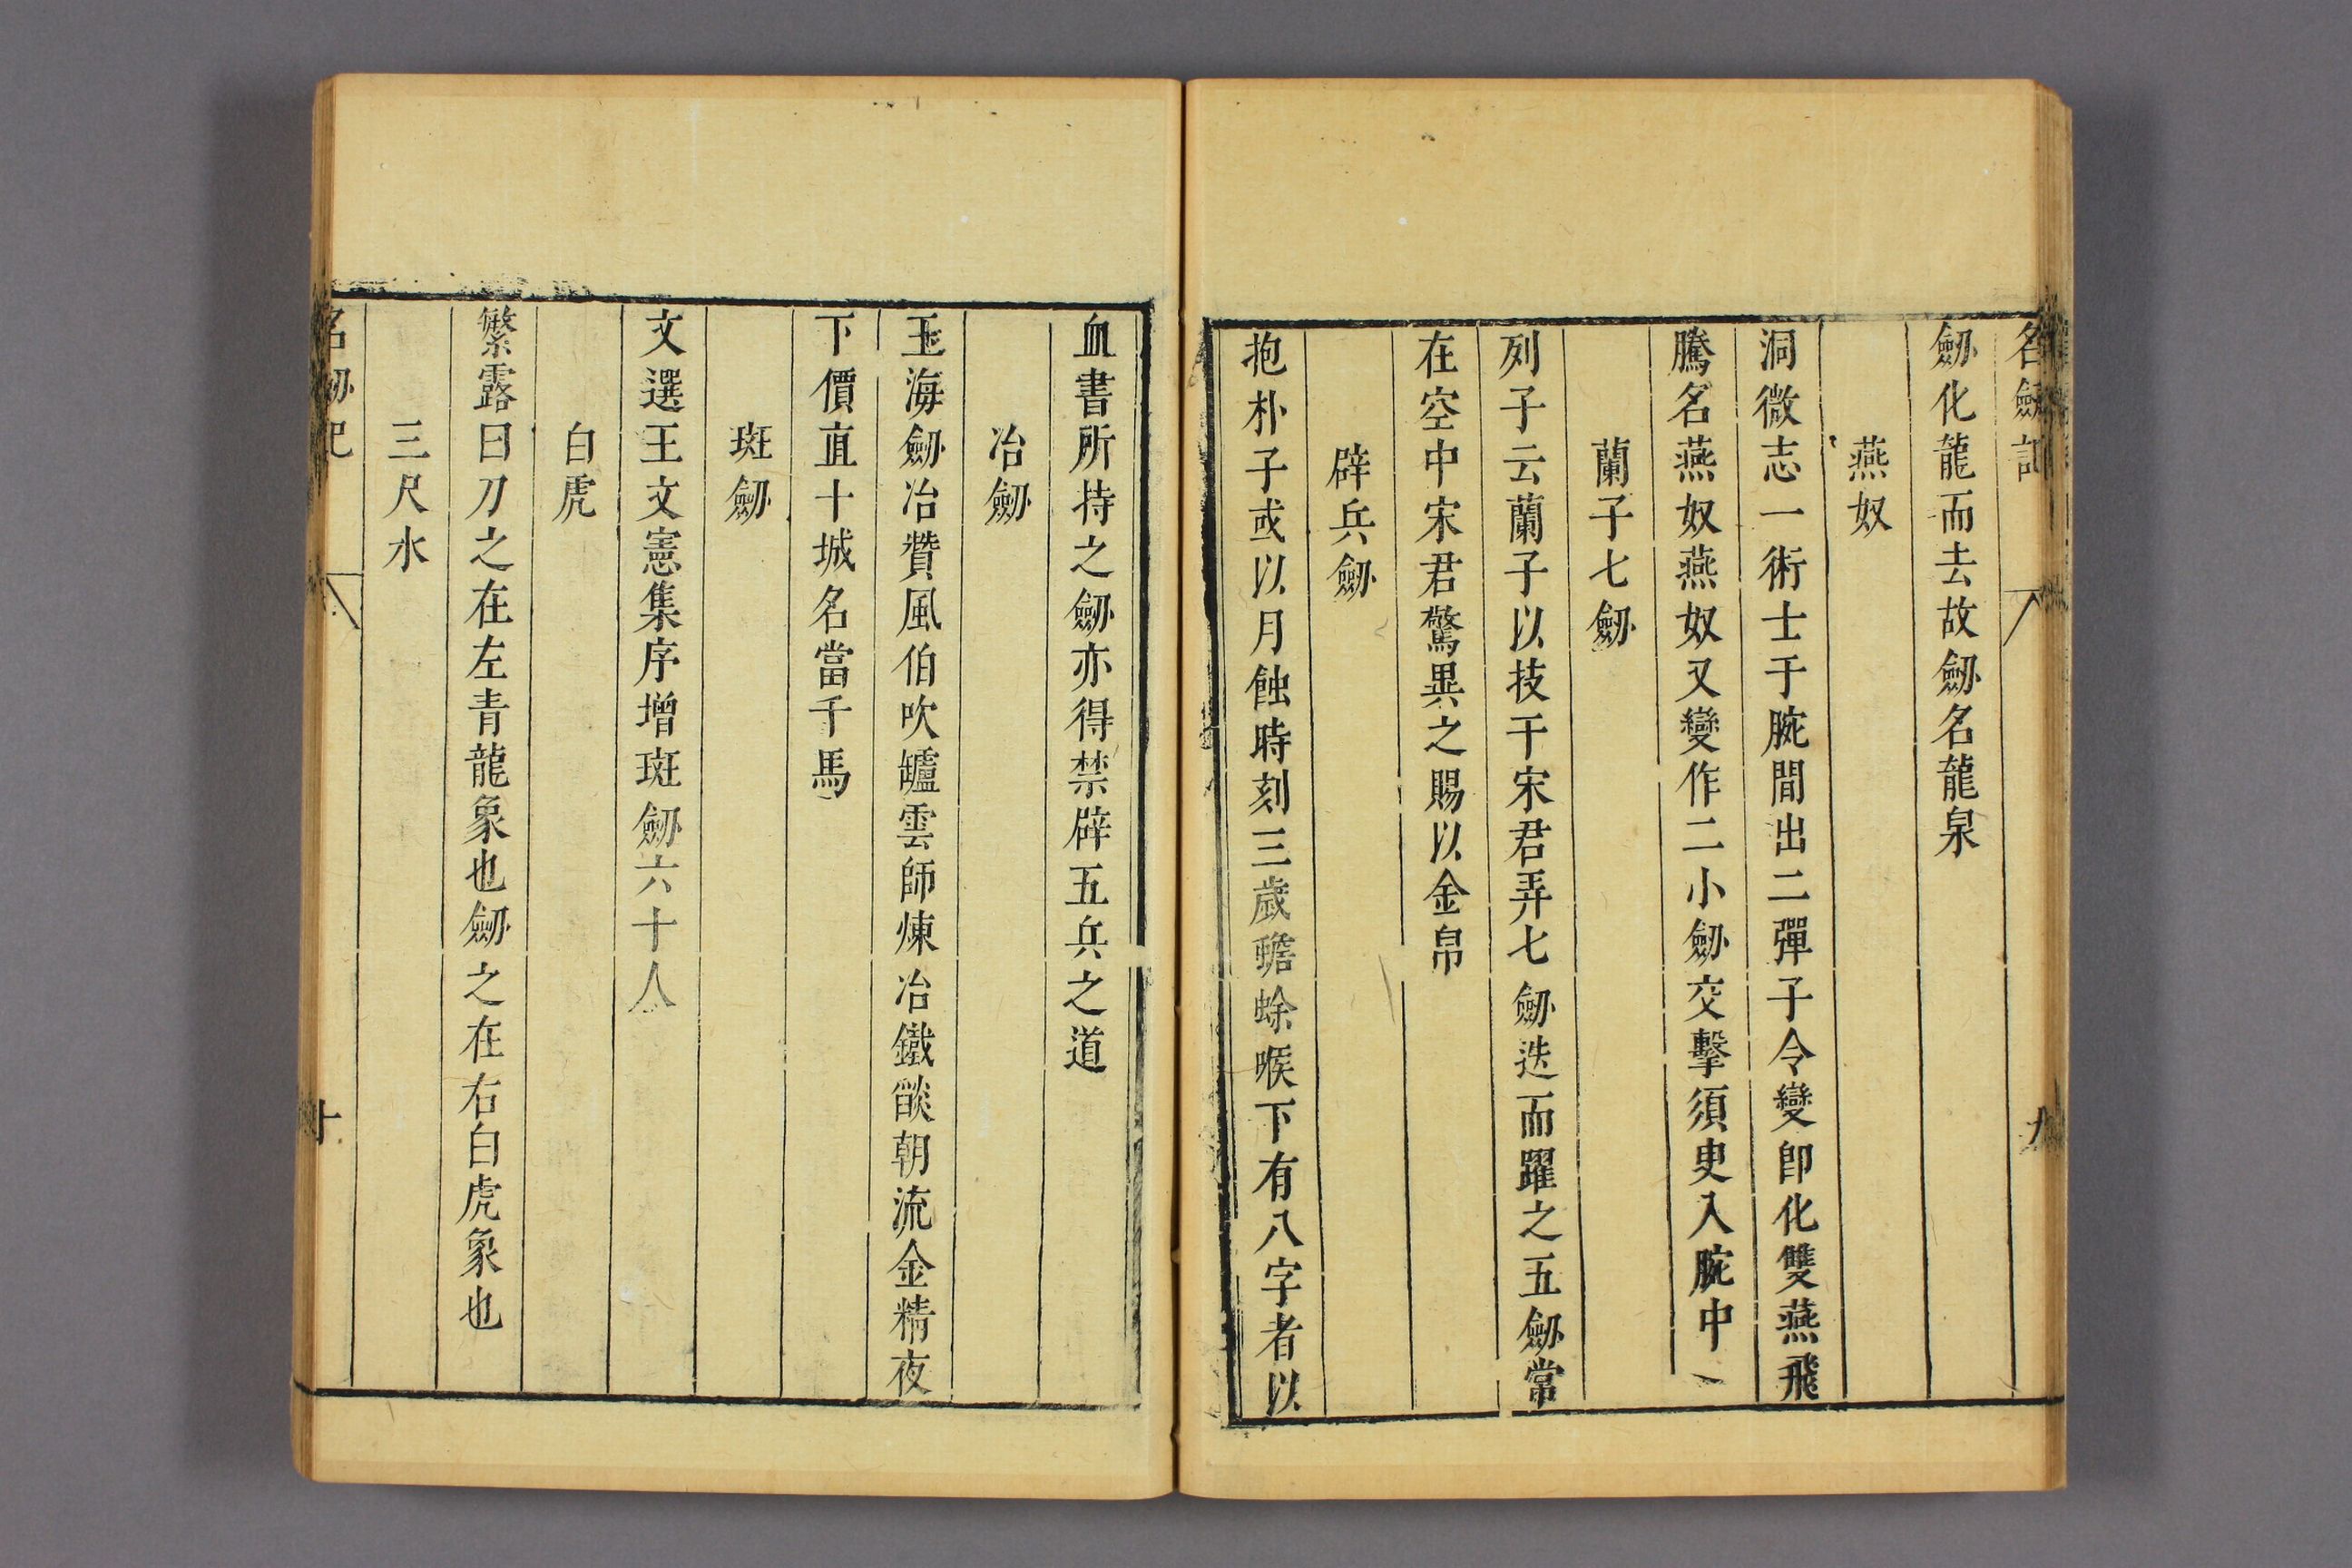 名劒記
九
劒化龍而去故劒名龍泉
燕奴
洞微志一術士于腕間出二彈子令變卽化雙燕飛
騰名燕奴燕奴又變作二小劒交擊須臾入腕中
蘭子七劒
列子云蘭子以技干宋君弄七劒迭而躍之五劒常
在空中宋君驚異之賜以金帛
辟兵劒
抱朴子或以月蝕時刻三歲蟾蜍喉下有八字者以
血書所持之劒亦得禁辟五兵之道
冶劒
玉海劒冶贊風伯吹罏雲師煉冶鐵燄朝流金精夜
下價直十城名當千馬
斑劒
文選王文憲集序增斑劒六十人
白虎
繁露曰刀之在左青龍象也劒之在右白虎象也
三尺水
名劒記
十